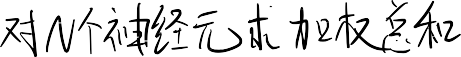 对N个神经元求加权总和